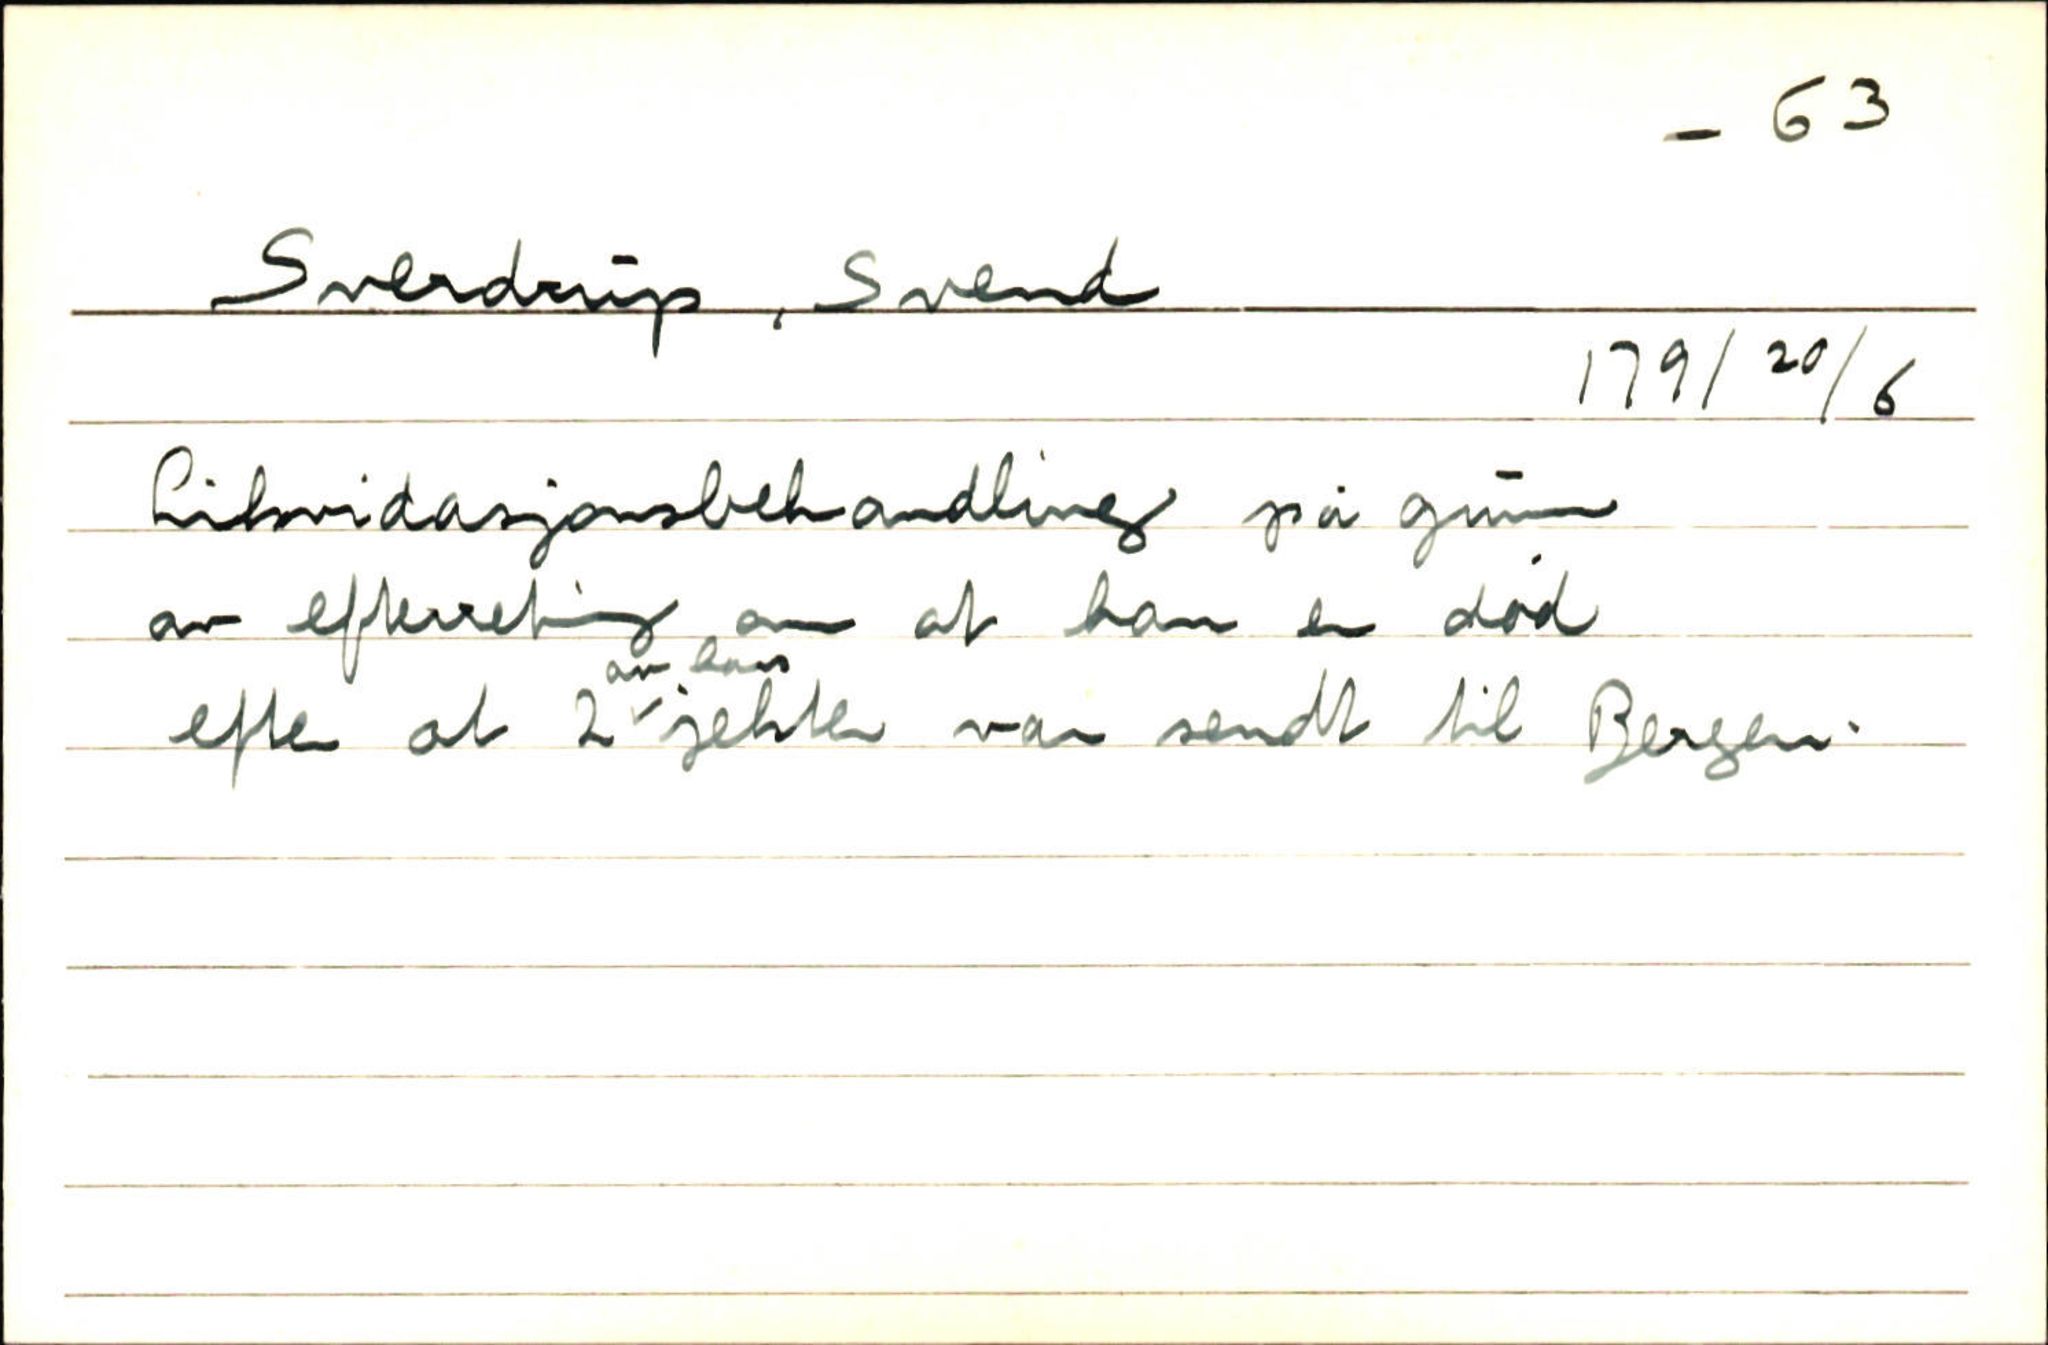 - 63
Sverdrup, Svend
179/ 20/6
Likvidasjonsbehandling på grunn
av efterretning om at han er død
efter at 2 av hans jekter var sendt til Bergen.